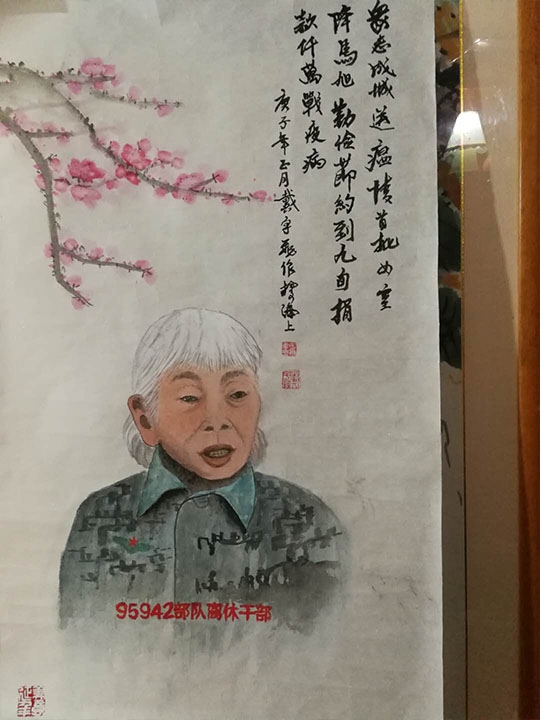 衆志成城送瘟情首批女空
降馬旭勤俭節約到九旬捐
款仟萬戰疫病
庚子年正月戴宇作海上
95942部队离休干部